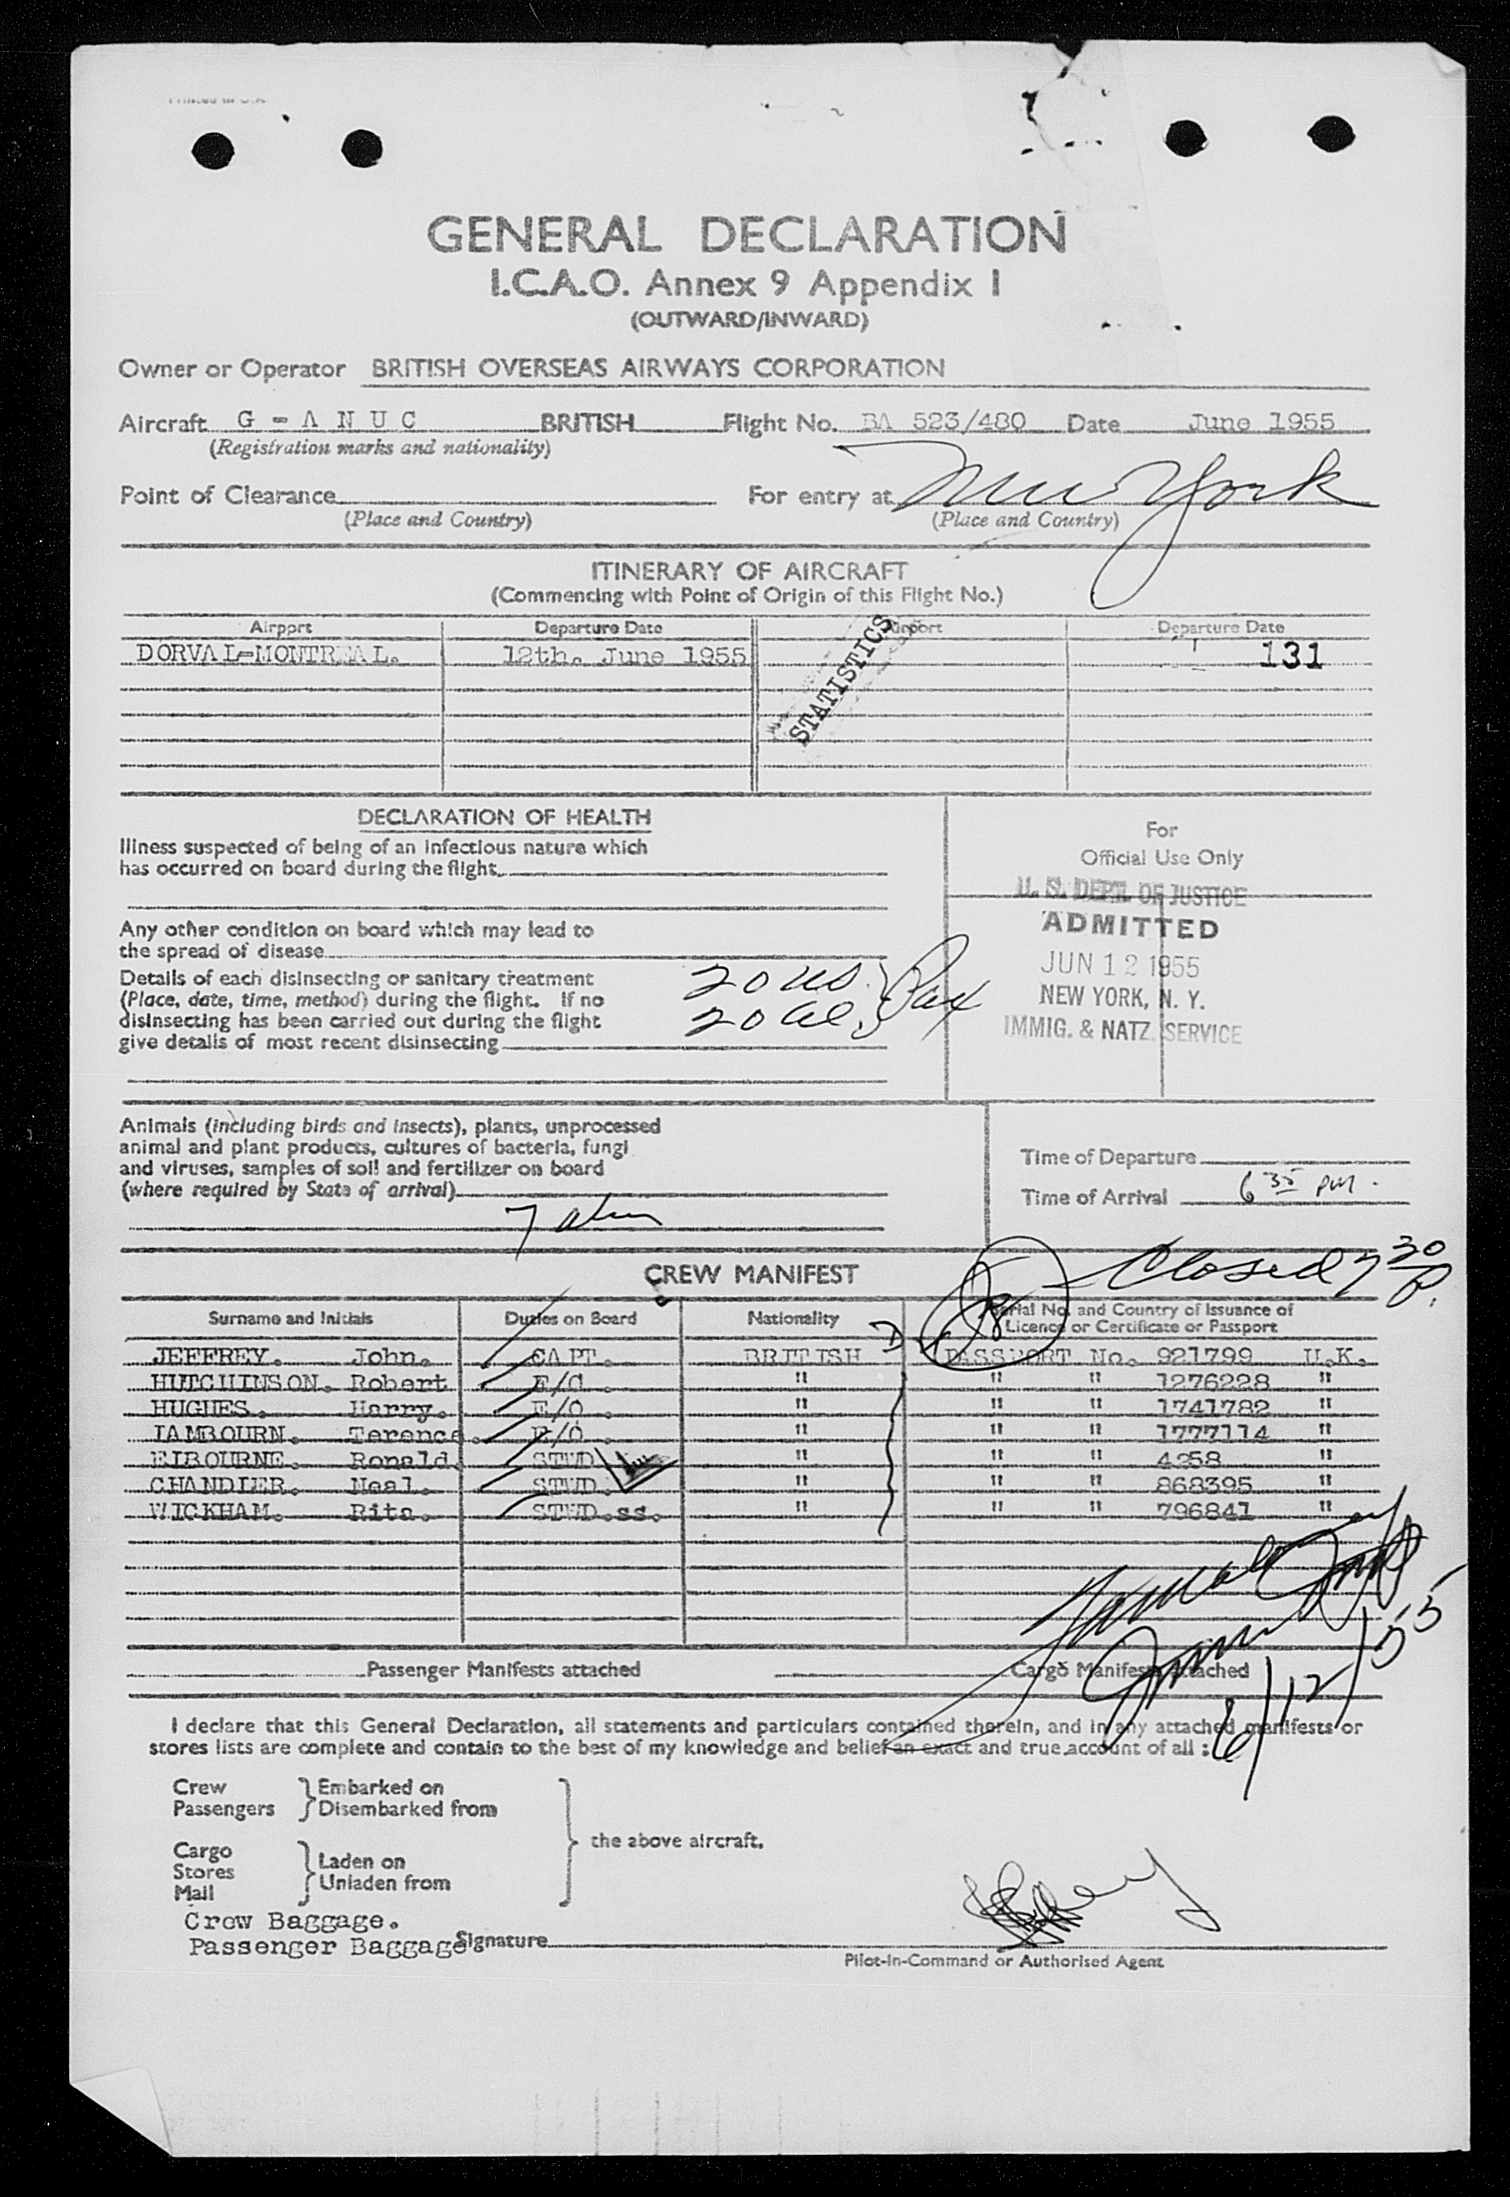 GENERAL DECLARATION
I.C.A.O. Annex 9 Appendix 1
(OUTWARD/INWARD)
Owner or Operator BRITISH OVERSEAS AIRWAYS CORPORATION
Aircraft G - A N U C BRITISH Flight No. BA 523/480 Date June 1955
(Registration marks and nationality)
Point of Clearance For entry at New York
(Place and Country) (Place and Country)
ITINERARY OF AIRCRAFT
(Commencing with Point of Origin of this Flight No.)
Airport Departure Date Airport Departure Date
DORVAL-MONTREAL. 12th. June 1955 131
STATISTICS
DECLARATION OF HEALTH
Illness suspected of being of an infectious nature which
has occurred on board during the flight
Any other condition on board which may lead to
the spread of disease
Details of each disinsecting or sanitary treatment
(Place, date, time, method) during the flight. If no
disinsecting has been carried out during the flight
give details of most recent disinsecting
20 US
20 al
Pax
For
Official Use Only
U. S. DEPT. OF JUSTICE
ADMITTED
JUN 12 1955
NEW YORK, N. Y.
IMMIG. & NATZ. SERVICE
Animals (including birds and insects), plants, unprocessed
animal and plant products, cultures of bacteria, fungi
and viruses, samples of soil and fertilizer on board
(where required by State of arrival)
7 alien
Time of Departure
Time of Arrival 6 35 pm.
Closed 7 30 P.
CREW MANIFEST
Surname and Initials Duties on Board Nationality Serial No. and Country of Issuance of
Licence or Certificate or Passport
JEFFREY. John. CAPT. BRITISH D PASSPORT No. 921799 U.K.
HUTCHINSON. Robert F/O. " " " 1276228 "
HUGHES. Harry. E/O. " " " 1741782 "
LAMBOURN. Terence. R/O. " " " 1777114 "
EIBOURNE. Ronald. STWD. " " " 4258 "
CHANDLER. Neal. STWD. " " " 868395 "
WICKHAM. Rita. STWD.ss. " " " 796841 "
Passenger Manifests attached Cargo Manifests attached
6/12/55
I declare that this General Declaration, all statements and particulars contained therein, and in any attached manifests or
stores lists are complete and contain to the best of my knowledge and belief an exact and true account of all :
Crew
Passengers
Embarked on
Disembarked from
Cargo
Stores
Mail
Laden on
Unladen from
the above aircraft.
Crew Baggage.
Passenger Baggage
Signature
Pilot-in-Command or Authorised Agent